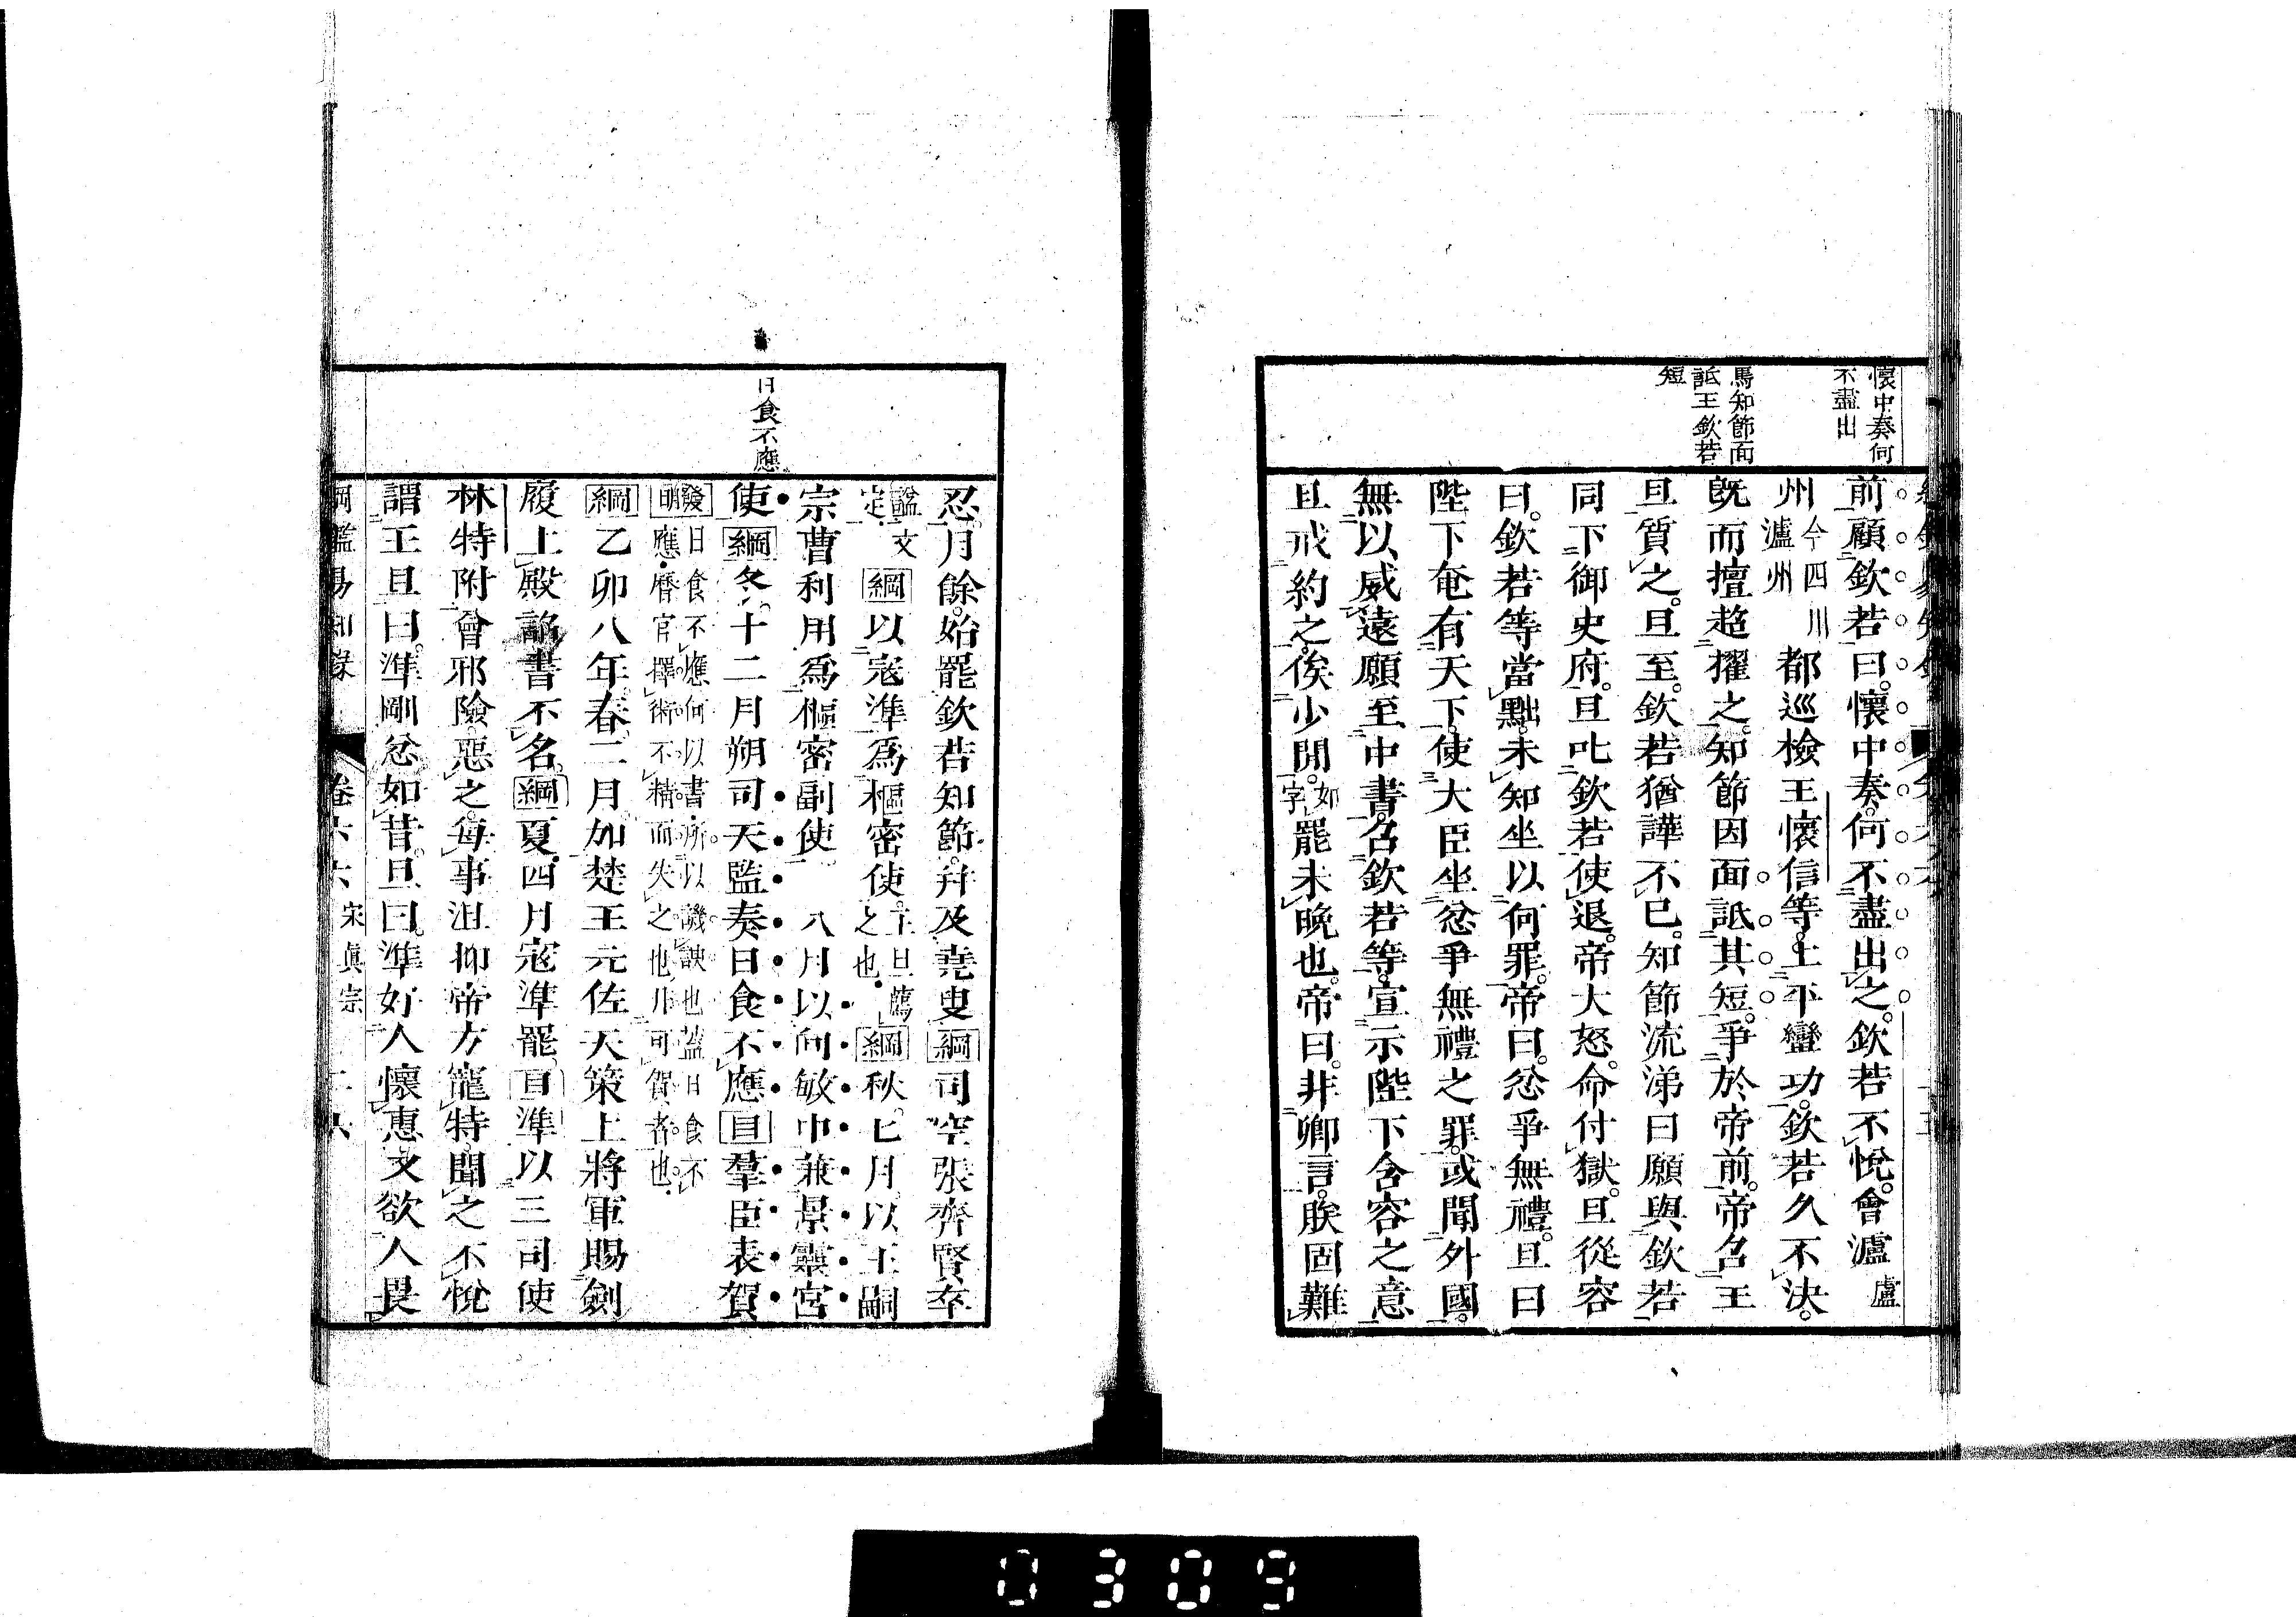 懷中奏何
不盡出
馬知節面
詆王欽若
短
前顧欽若曰懷中奏何不盡出之欽若不悅會瀘盧
州今四川瀘州都巡檢王懷信等上平蠻功欽若久不決
既而擅超擢之知節因面詆其短爭於帝前帝召王
旦質之旦至欽若猶譁不已知節流涕曰願與欽若
同下御史府旦叱欽若使退帝大怒命付獄旦從容
曰欽若等當黜未知坐以何罪帝曰忿爭無禮旦曰
陛下奄有天下使大臣坐忿爭無禮之罪或聞外國
無以威遠願至中書召欽若等宣示陛下含容之意
且戒約之俟少閒如字罷未晚也帝曰非卿言朕固難
日食不應
忍月餘始罷欽若知節并及堯叟綱司空張齊賢卒
諡文定綱以寇準爲樞密使王旦薦之也綱秋七月以王嗣
宗曹利用爲樞密副使 八月以向敏中兼景靈宮
使綱冬十二月朔司天監奏日食不應目羣臣表賀
發明日食不應何以書所以譏諛也蓋日食不
應曆官擇術不精而失之也非可賀者也
綱乙卯八年春二月加楚王元佐天策上將軍賜劍
履上殿詔書不名綱夏四月寇準罷目準以三司使
林特附會邪險惡之每事沮抑帝方寵特聞之不悅
謂王旦曰準剛忿如昔旦曰準好人懷惠又欲人畏
綱鑑易知錄 卷六六 宋眞宗
0309